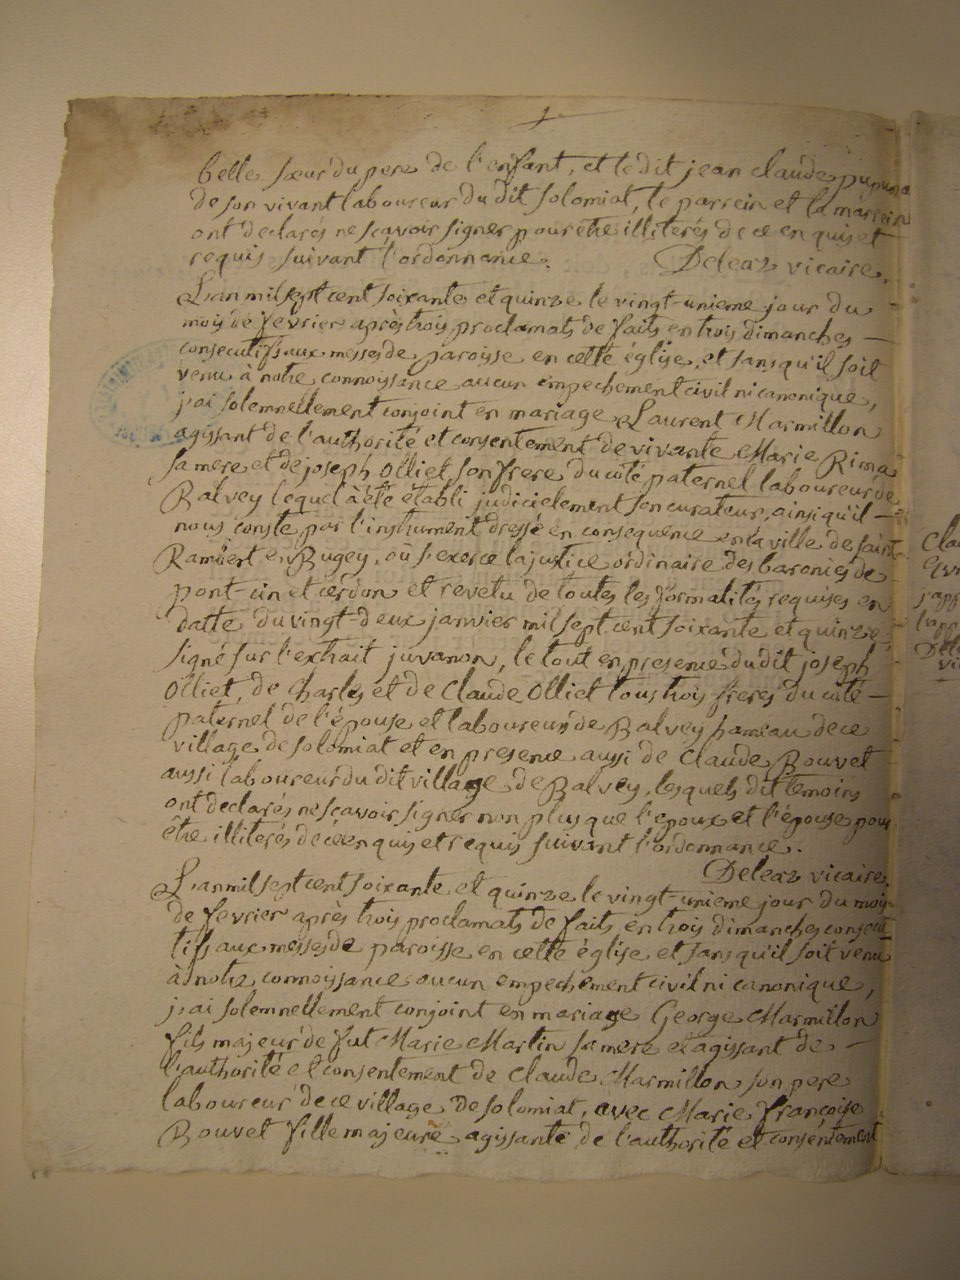 belle sœur du pere de l'enfant, et le dit jean claude
de son vivant laboureur du dit solomiat, le parrein et la marrein
ont declarés ne sçavoir signer pour être illiterés de ce enquis et
requis suivant l'ordonnance. Deleaz vicaire.
L'an mil sept cent soixante et quinze le vingt-unieme jour du
mois de fevrier après trois proclamats de faits en trois dimanches
consecutifs aux messes de paroisse en cette église, et sans qu'il soit
venu à notre connoissance aucun empechement civil ni canonique,
j'ai solemnellement conjoint en mariage Laurent Marmillon
agissant de l'authorité et consentement de vivante Marie Rima
sa mere et de joseph Olliet son frere du côté paternel laboureur de
Balvey lequel à été établi judicielement son curateur, ainsi qu'il
nous conste par l'instrument dressé en consequence en la ville de saint
Rambert en Bugey, où s'exerce la justice ordinaire des baronies de
pont-cin et cerdon et revetu de toutes les formalités requises en
datte du vingt-deux janvier mil sept cent soixante et quinze
signé sur l'extrait juvanon, le tout en presence du dit joseph
Olliet, de Charles et de Claude Olliet tous trois freres du côté
paternel de l'épouse et laboureurs de Balvey hameau de ce
village de solomiat et en presence aussi de Claude Bouvet
aussi laboureur du dit village de Balvey, lesquels dit temoins
ont declarés ne sçavoir signer non plus que l'epoux et l'épouse pour
être illiterés de ce enquis et requis suivant l'ordonnance.
Deleaz vicaire.
L'an mil sept cent soixante et quinze le vingt-unieme jour du mois
de fevrier après trois proclamats de faits en trois dimanches consecu
tifs aux messes de paroisse en cette église et sans qu'il soit venu
à notre connoissance aucun empechement civil ni canonique,
j'ai solemnellement conjoint en mariage George Marmillon
fils majeur de fut Marie Martin sa mere et agissant de
l'authorité et consentement de Claude Marmillon son pere
laboureur de ce village de solomiat, avec Marie françoise
Bouvet fille majeure agissante de l'authorité et consentement